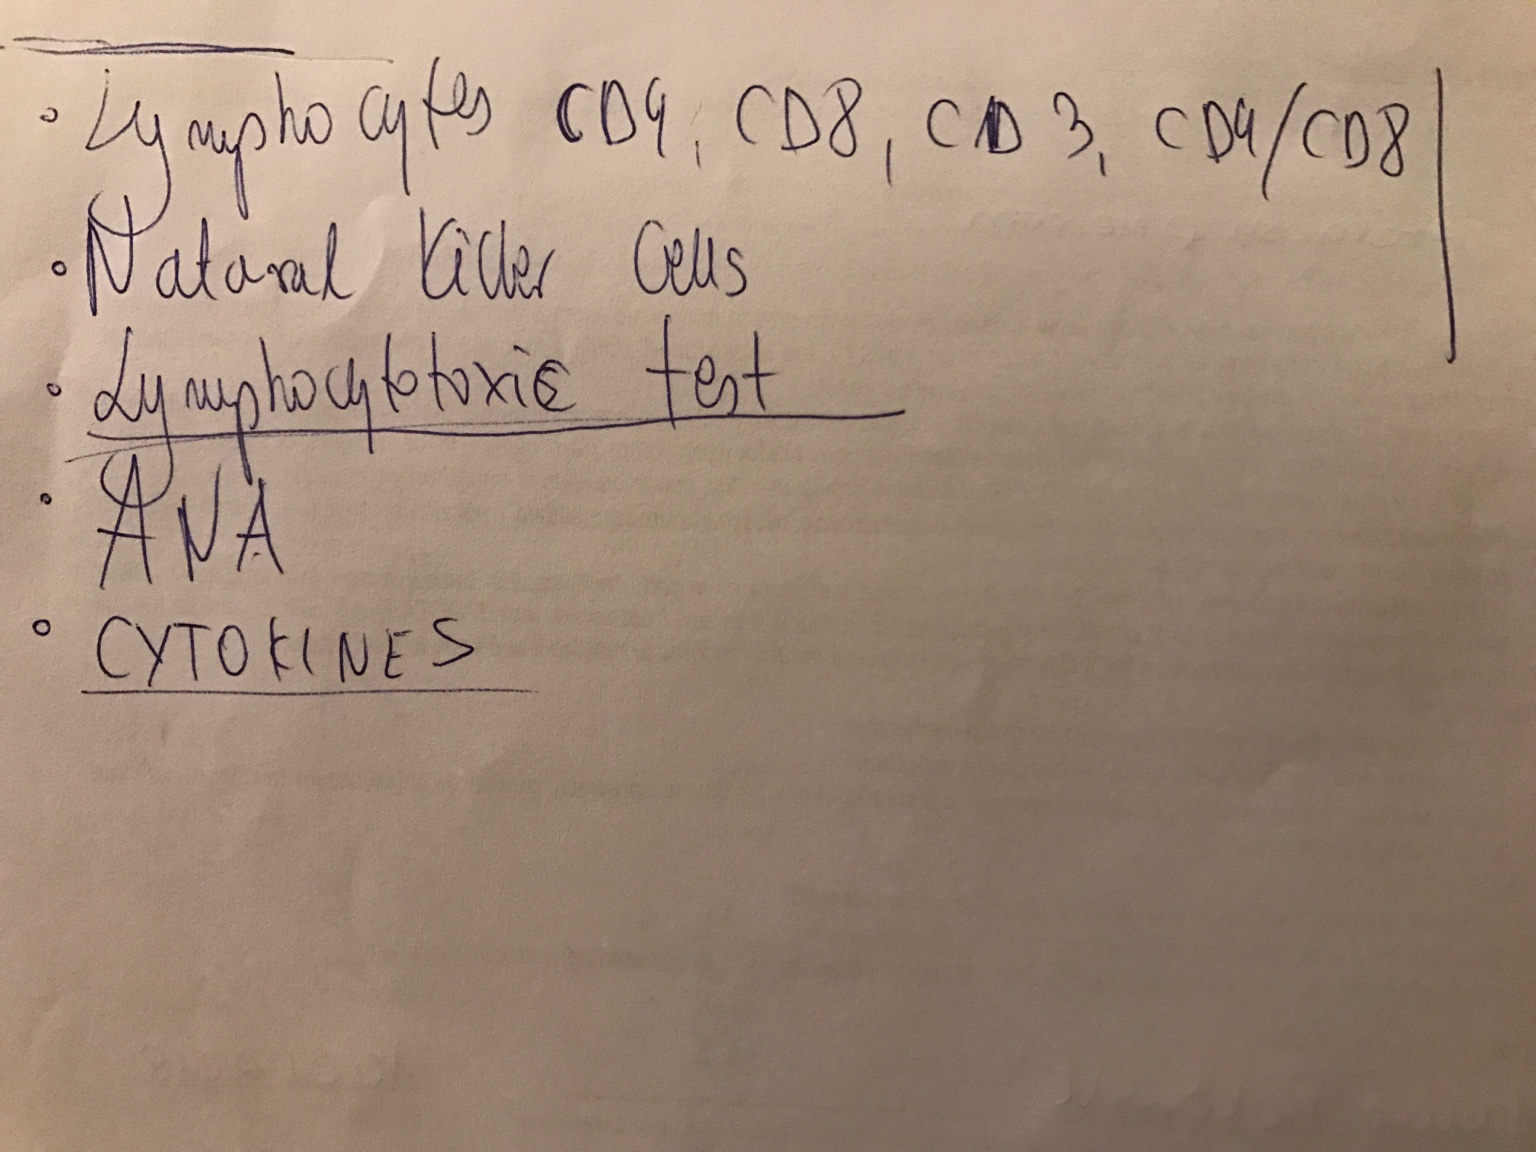 • Lymphocytes CD4, CD8, CD3, CD4/CD8
• Natural Killer Cells
• Lymphocytotoxic test
• ANA
• CYTOKINES